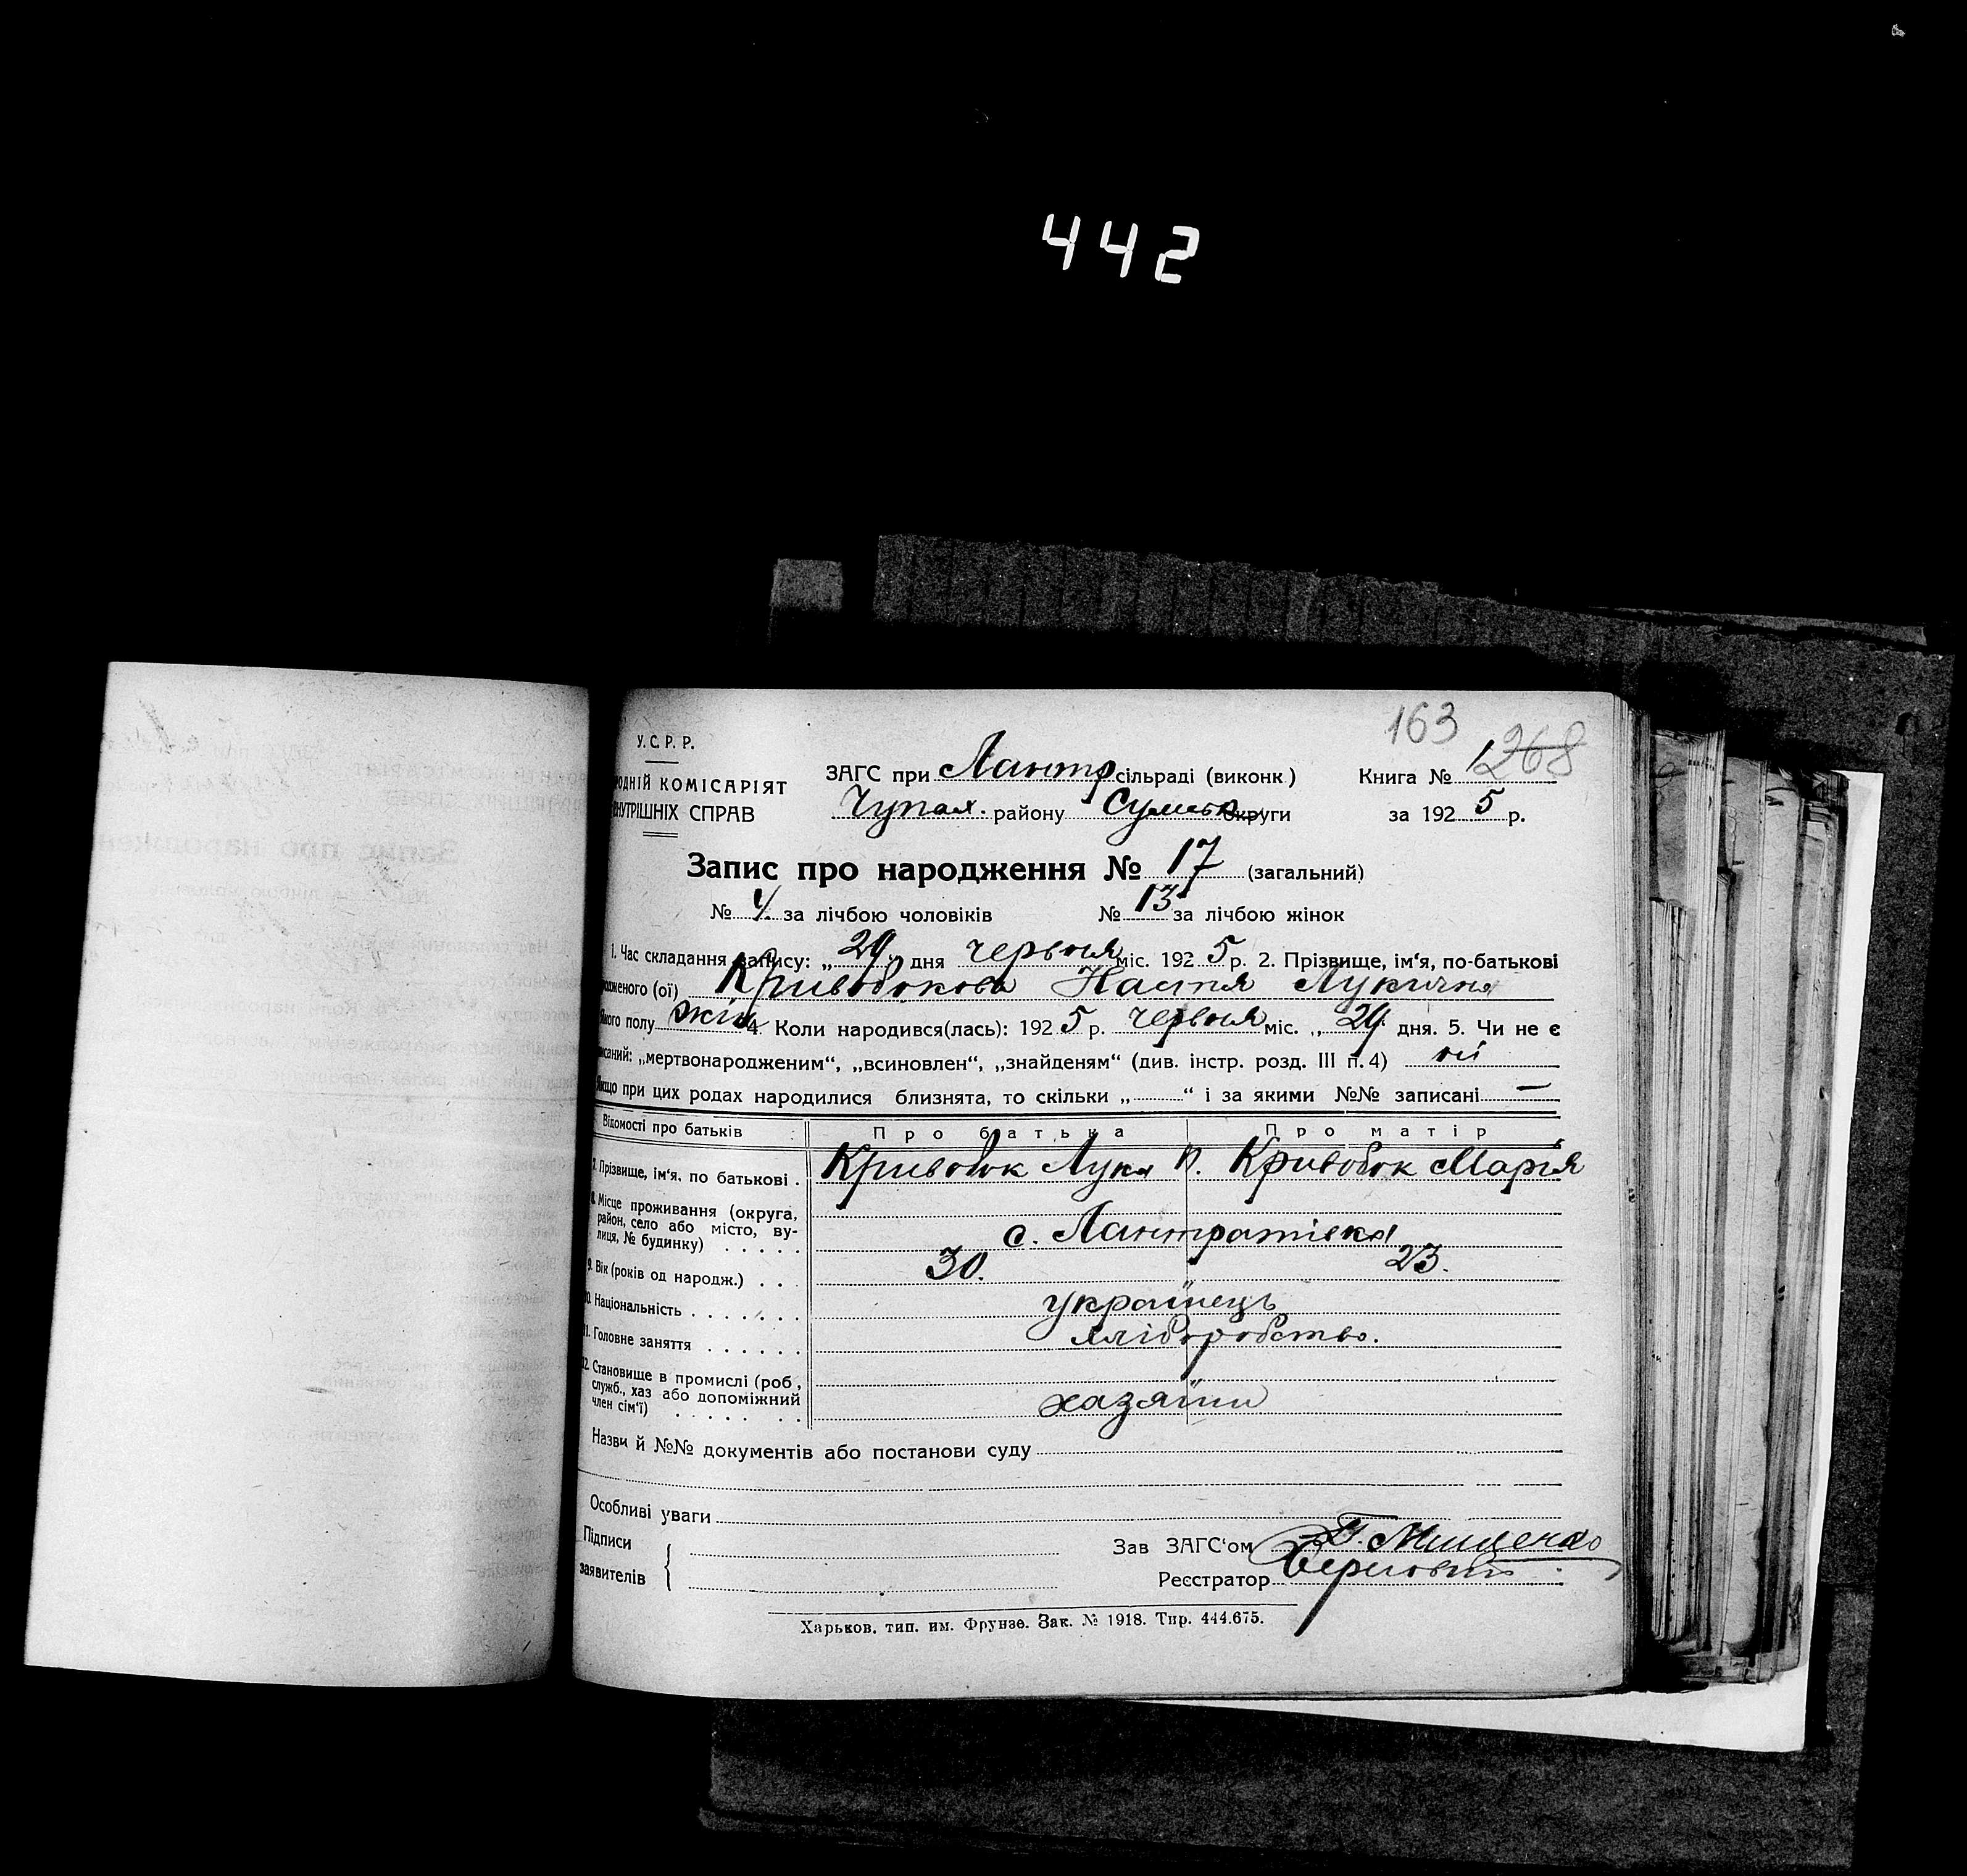 442
163
268
У.С.Р.Р.
ОДНІЙ КОМІСАРІЯТ
НУТРІШНІХ СПРАВ
ЗАГС при Лантр. сільраді (виконк.) Книга № 1
Чупах. району Сумськ. округи за 1925 р.
Запис про народження № 17 (загальний)
№ 4 за лічбою чоловіків № 13 за лічбою жінок
1. Час складання запису: „29„ дня червня міс. 1925 р. 2. Прізвище, ім‘я, по-батькові
одженого (ої) Кривобокова Настя Лукична
якого полу жін. 4. Коли народився(лась): 1925 р. червня міс. „29„ дня. 5. Чи не є
писаний: „мертвонародженим“, „всиновлен“, „знайденям“ (див. інстр. розд. III п. 4) ні
Якщо при цих родах народилися близнята, то скільки „ “ і за якими №№ записані —
Відомості про батьків : Про батька Про матір
7. Прізвище, ім‘я, по батькові . Кривобок Лука П. Кривобок Марія
8. Місце проживання (округа,
район, село або місто, ву-
лиця, № будинку) . . . . . с. Лантратівка
9. Вік (років од народж.) . . . 30. 23.
10. Національність . . . . . . . українець
11. Головне заняття . . . . . . хліборобство.
12. Становище в промислі (роб.,
служб., хаз або допоміжний
член сім‘ї) . . . . . . . хазяїни
Назви й №№ документів або постанови суду
Особливі уваги
Підписи
заявителів
Зав ЗАГС‘ом Мищенко
Реєстратор
Харьков. тип. им. Фрунзе. Зак. № 1918. Тир. 444.675.